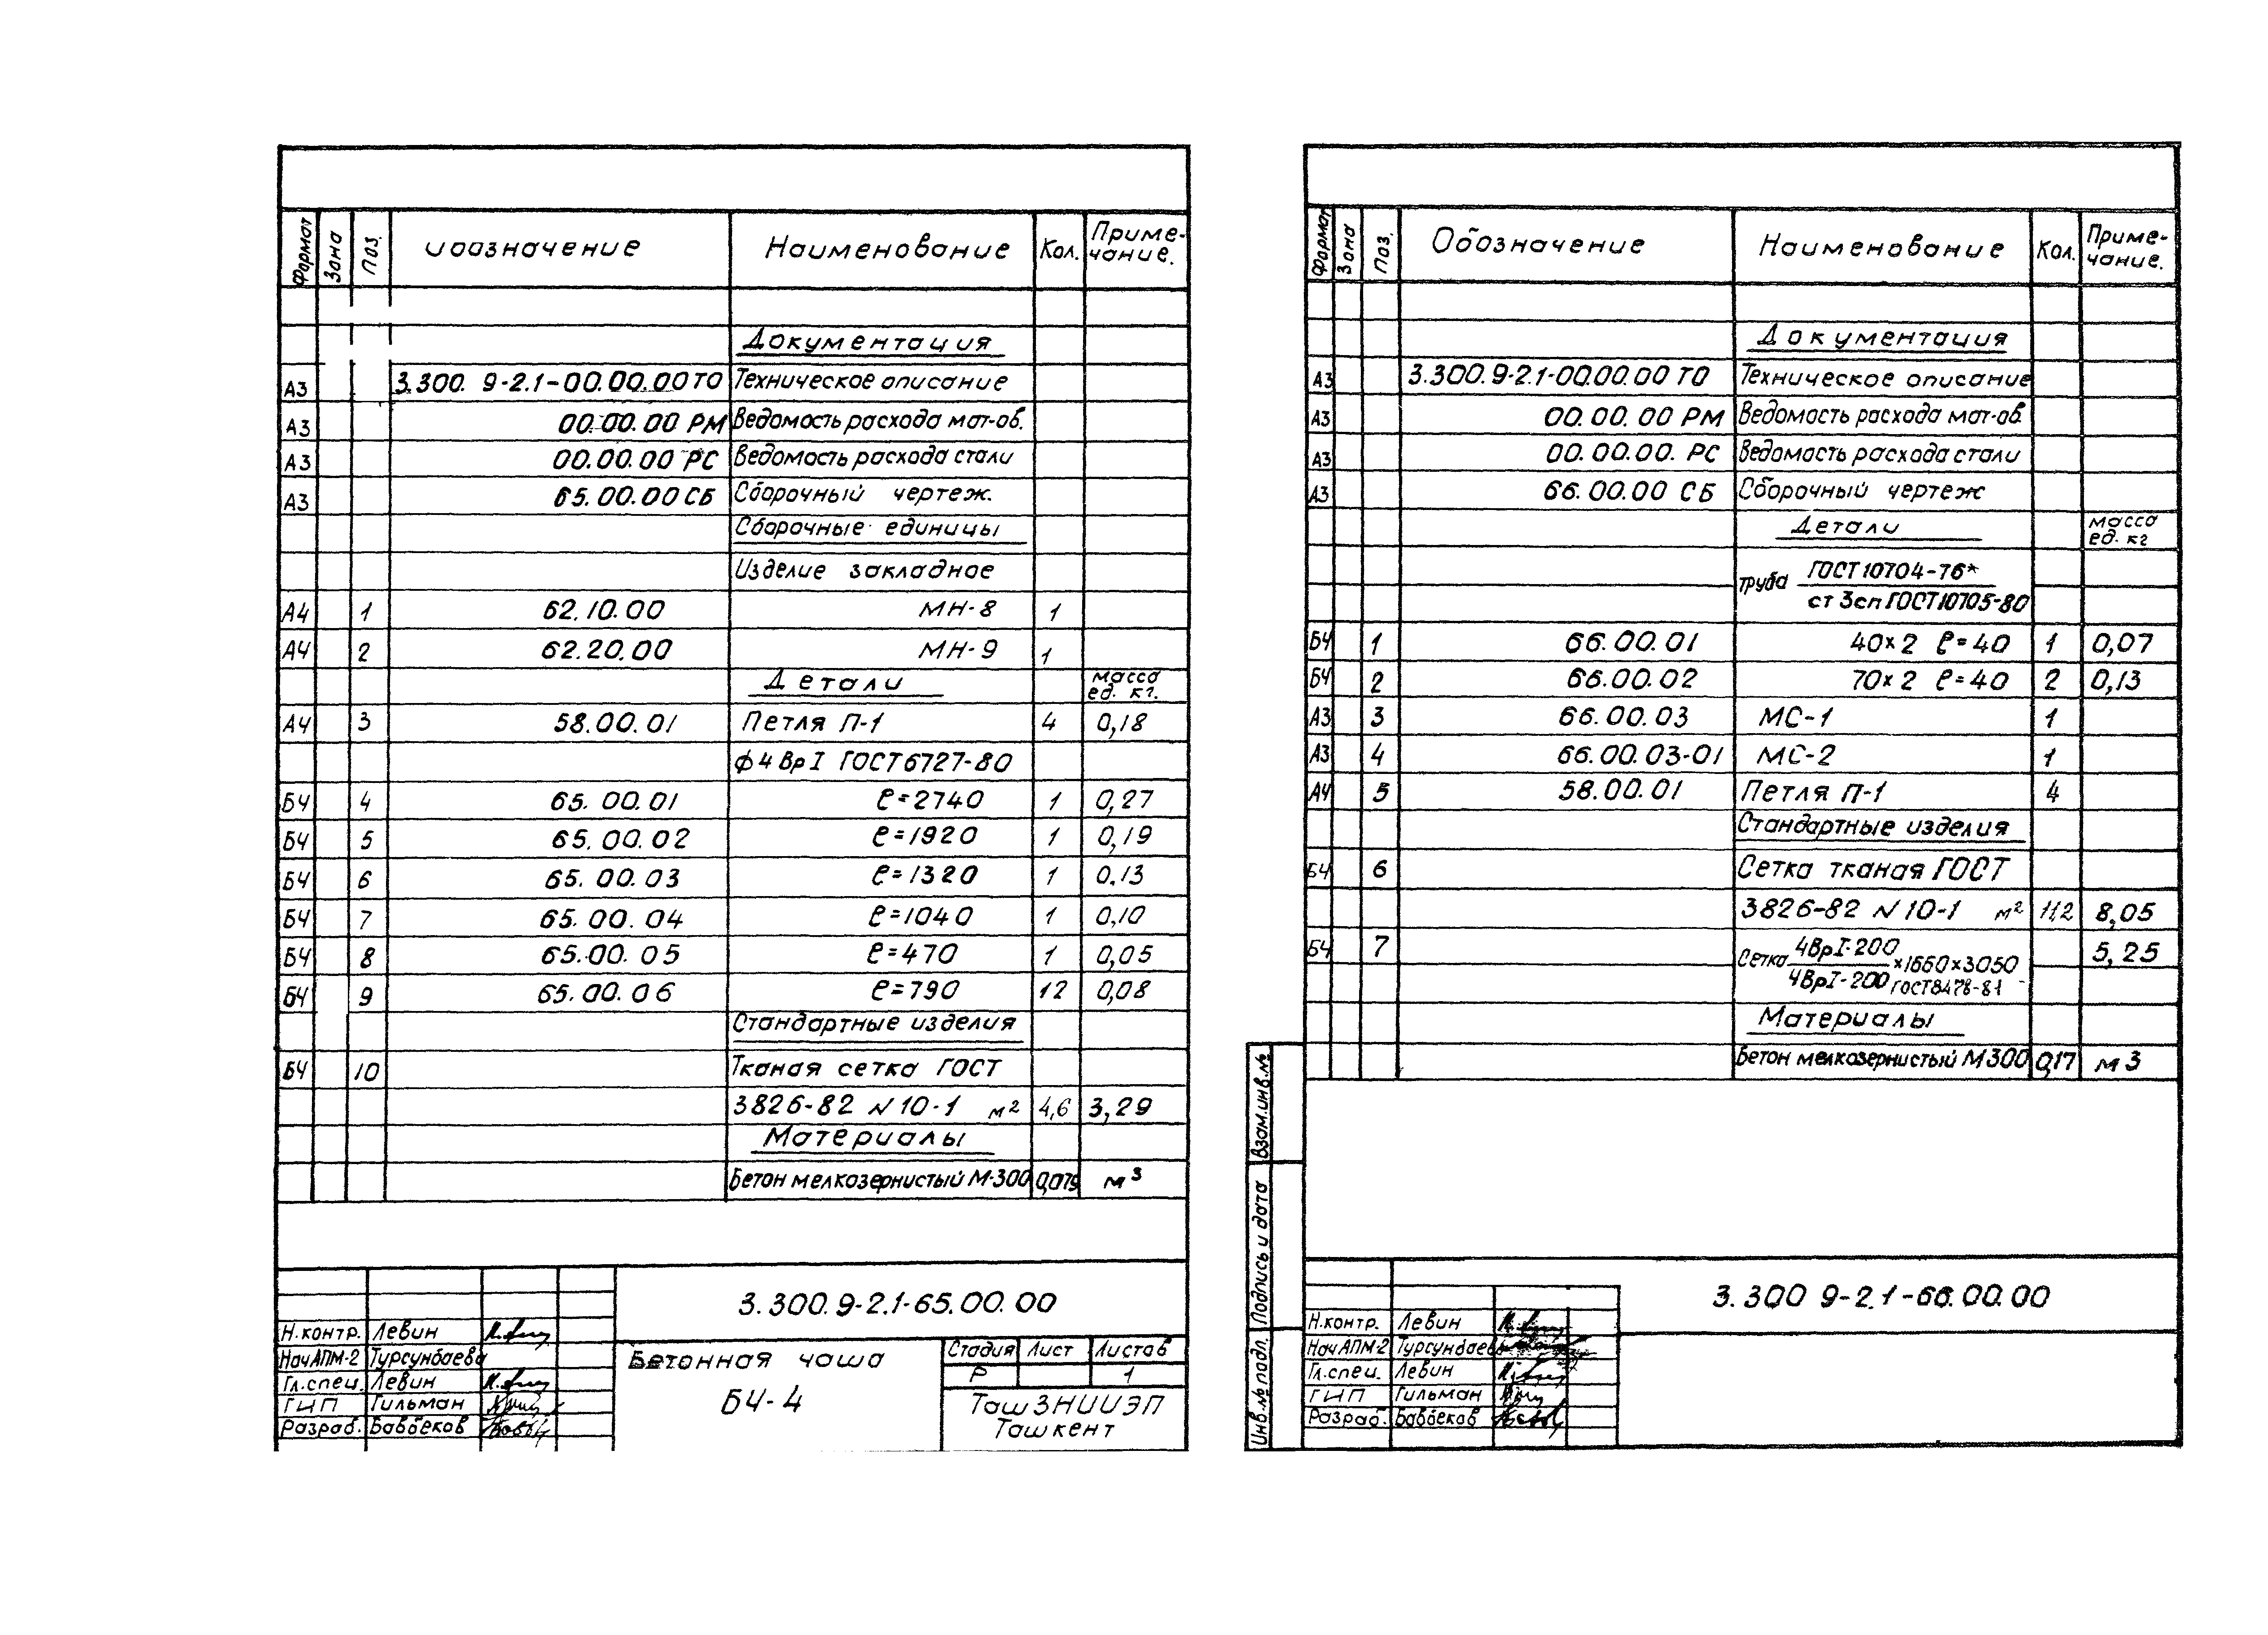 Формат Зона Поз. Обозначение Наименование Кол. Приме-
чание.
Документация
А3 3.300. 9-2.1-00.00.00 ТО Техническое описание
А3 00.00.00 РМ Ведомость расхода мат-ов.
А3 00.00.00 РС Ведомость расхода стали
А3 65.00.00 СБ Сборочный чертеж.
Сборочные единицы
Изделие закладное
А4 1 62.10.00 МН-8 1
А4 2 62.20.00 МН-9 1
Детали масса
ед. кг.
А4 3 58.00.01 Петля П-1 4 0,18
ф4 ВрI ГОСТ 6727-80
БЧ 4 65.00.01 ℓ=2740 1 0,27
БЧ 5 65.00.02 ℓ=1920 1 0,19
БЧ 6 65.00.03 ℓ=1320 1 0.13
БЧ 7 65.00.04 ℓ=1040 1 0,10
БЧ 8 65.00.05 ℓ=470 1 0,05
БЧ 9 65.00.06 ℓ=790 12 0,08
Стандартные изделия
БЧ 10 Тканая сетка ГОСТ
3826-82 N 10-1 м² 4,6 3,29
Материалы
Бетон мелкозернистый М-300 0,079 м³
3.300.9-2.1-65.00.00
Н.контр. Левин
Нач АПМ-2 Турсунбаева
Гл.спец. Левин
ГИП Гильман
Разраб. Бавбеков
Бетонная чаша
БЧ-4
Стадия Лист Листов
Р 1
ТашЗНИИЭП
Ташкент
Формат Зона Поз. Обозначение Наименование Кол. Приме-
чание.
Документация
А3 3.300.9-2.1-00.00.00 ТО Техническое описание
А3 00.00.00 РМ Ведомость расхода мат-ов
А3 00.00.00. РС Ведомость расхода стали
А3 66.00.00 СБ Сборочный чертеж
Детали масса
ед. кг
труба ГОСТ 10704-76*
ст 3сп ГОСТ 10705-80
БЧ 1 66.00.01 40×2 ℓ=40 1 0,07
БЧ 2 66.00.02 70×2 ℓ=40 2 0,13
А3 3 66.00.03 МС-1 1
А3 4 66.00.03-01 МС-2 1
А4 5 58.00.01 Петля П-1 4
Стандартные изделия
БЧ 6 Сетка тканая ГОСТ
3826-82 N 10-1 м² 11,2 8,05
БЧ 7 Сетка 4ВрI-200 ×1660×3050 5,25
4ВрI-200 ГОСТ 8478-81
Материалы
Бетон мелкозернистый М 300 0,17 м3
Взам.инв.№
Подпись и дата
Инв.№ подл.
3.300 9-2.1-66.00.00
Н.контр. Левин
Нач АПМ-2 Турсунбаева
Гл.спец. Левин
ГИП Гильман
Разраб. Бавбеков